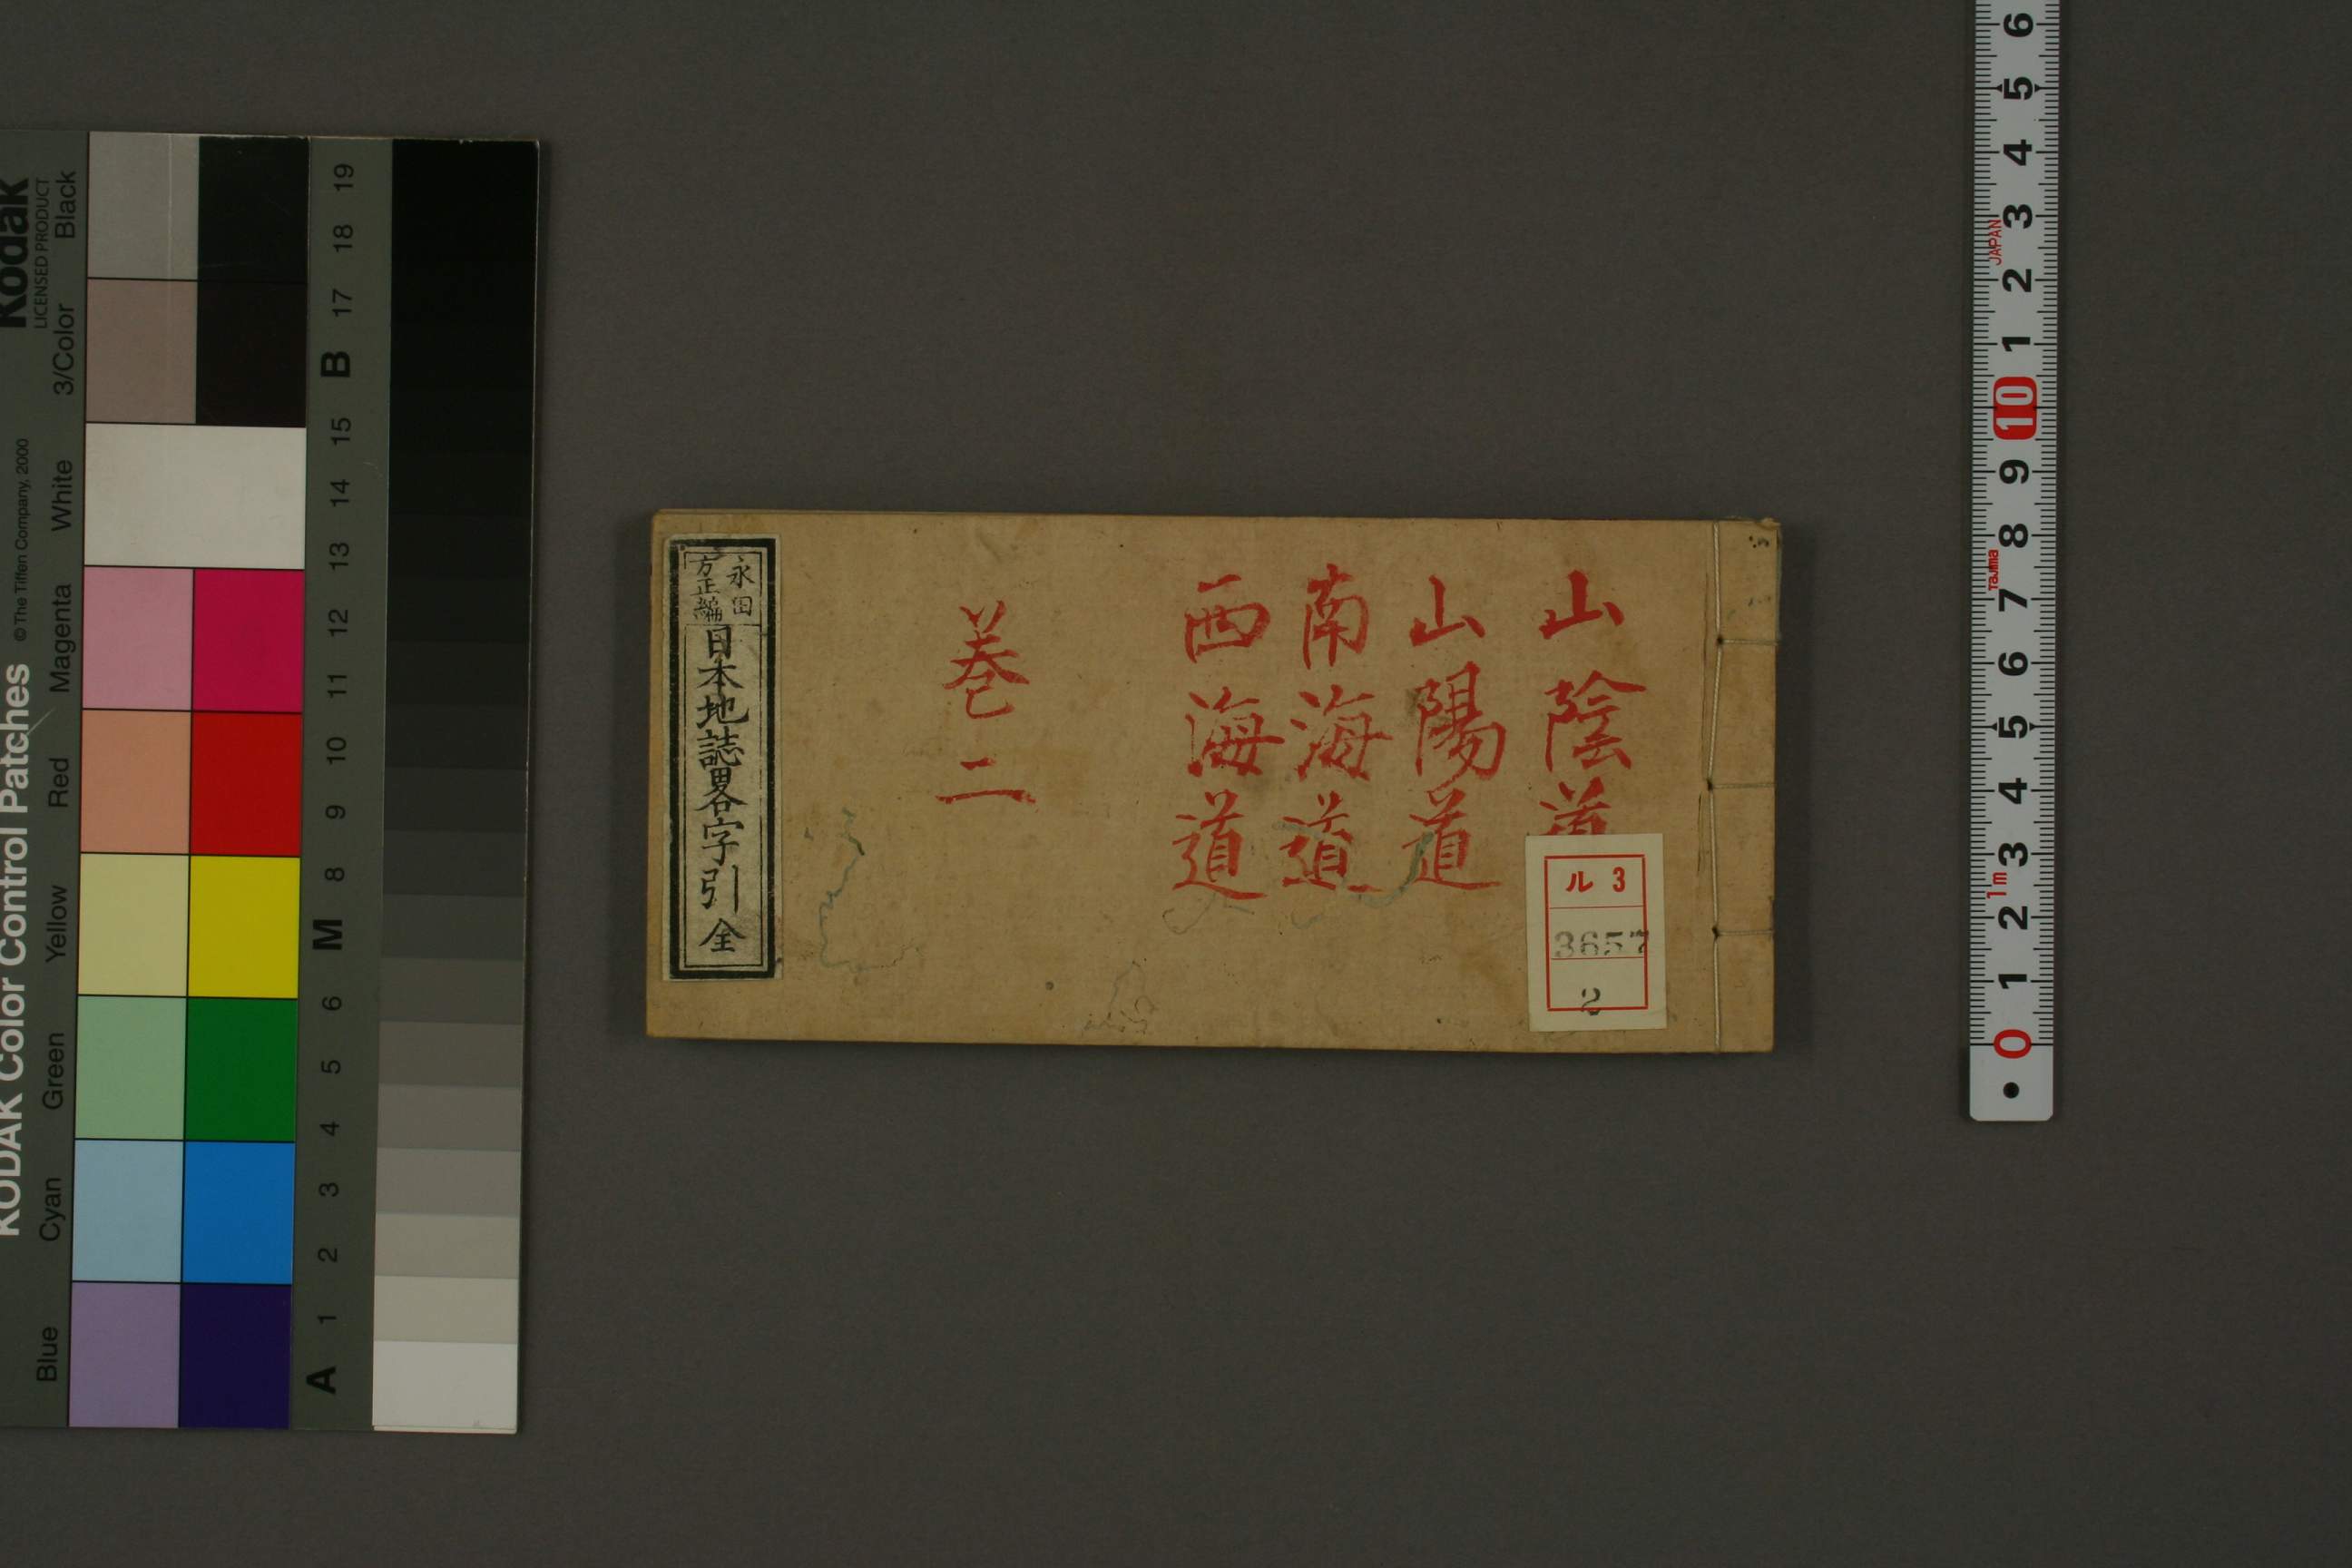 山陰道
山陽道
南海道
西海道
巻二
永田
方正編
日本地誌畧字引 全
ル 3
3657
2
KODAK Color Control Patches
© The Tiffen Company, 2000
Kodak
LICENSED PRODUCT
Blue Cyan Green Yellow Red Magenta White 3/Color Black
A 1 2 3 4 5 6 M 8 9 10 11 12 13 14 15 B 17 18 19
0 1 2 3 4 5 6 7 8 9 10 1 2 3 4 5 6
1m Tajima JAPAN